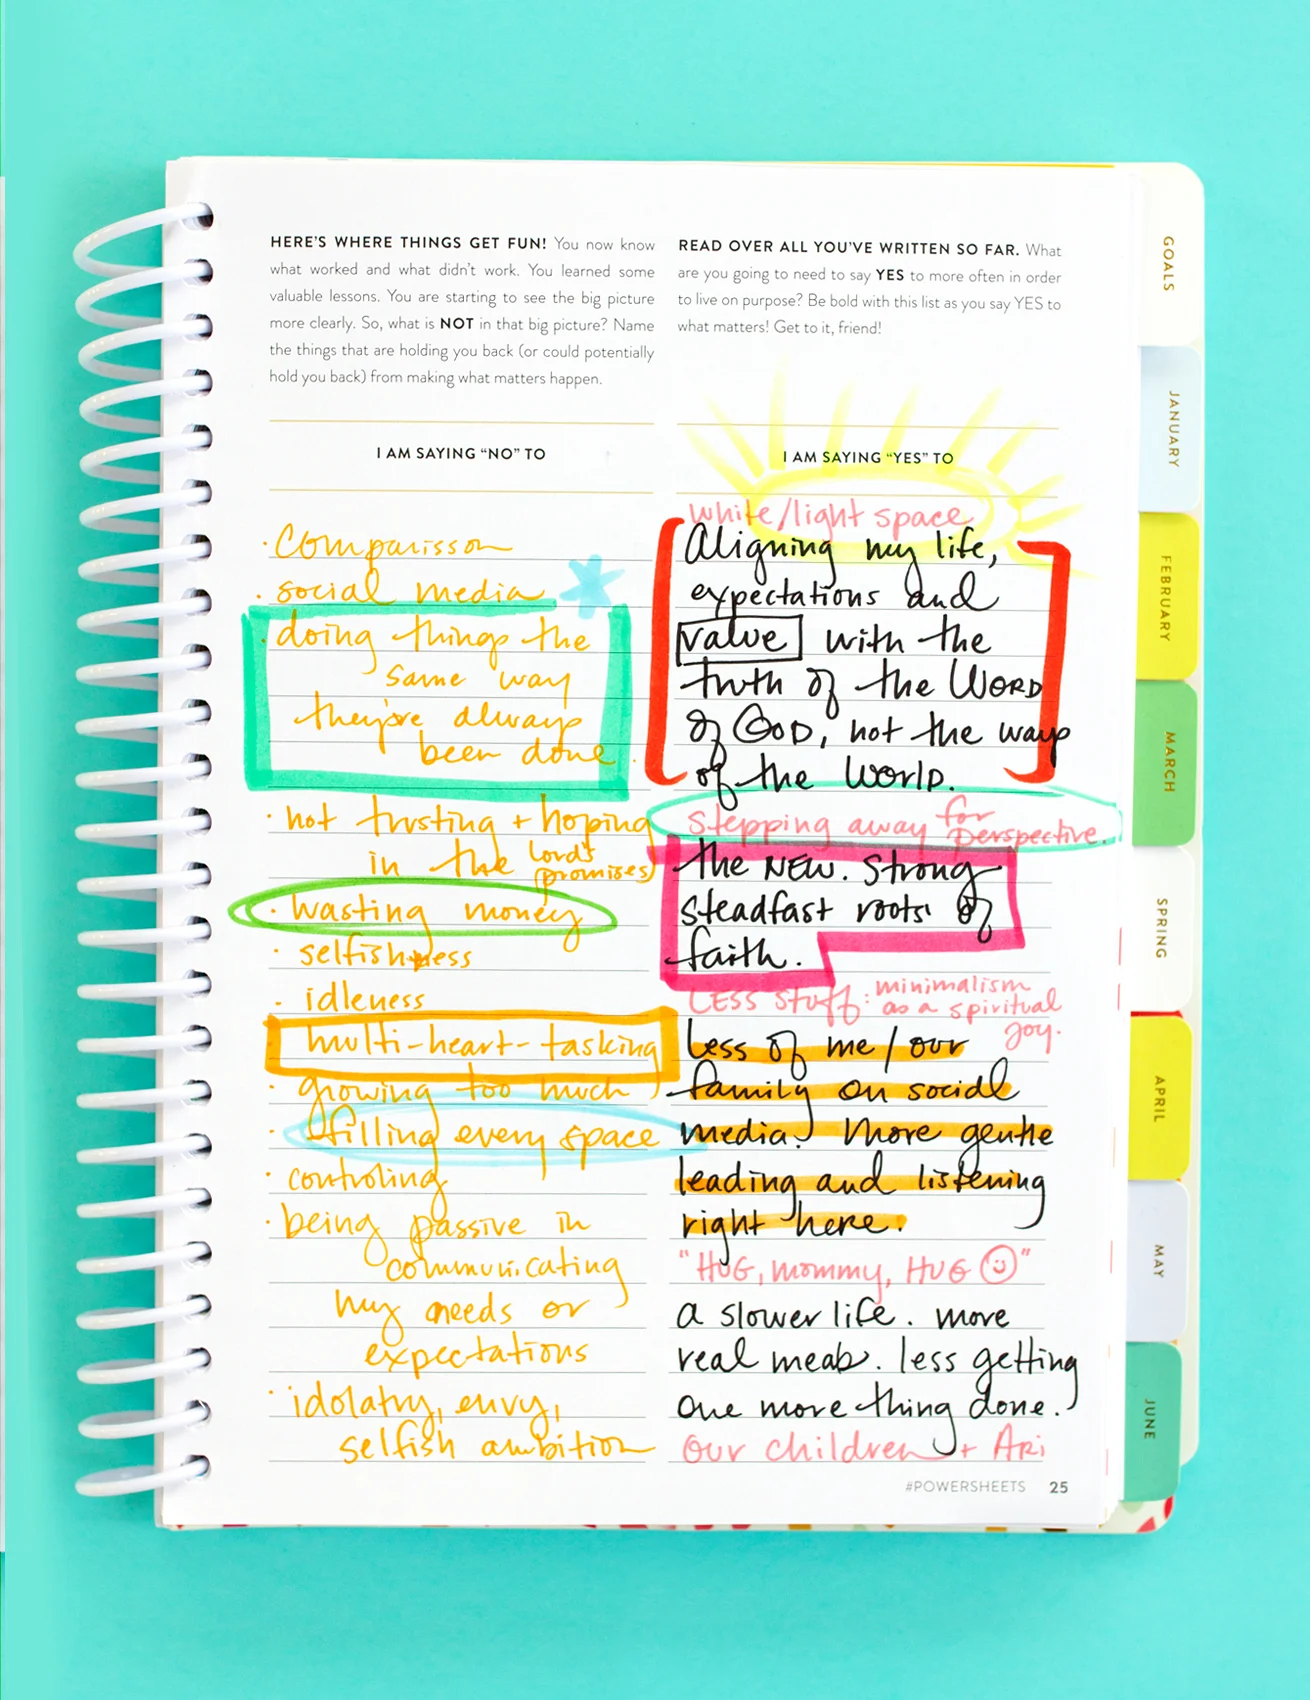 HERE'S WHERE THINGS GET FUN! You now know
what worked and what didn't work. You learned some
valuable lessons. You are starting to see the big picture
more clearly. So, what is NOT in that big picture? Name
the things that are holding you back (or could potentially
hold you back) from making what matters happen.
I AM SAYING “NO” TO
· Comparisson
· social media
· doing things the
same way
they're always
been done.
· not trusting + hoping
in the Lord's
promises)
· wasting money
· selfishness
· idleness
multi-heart-tasking
· growing too much
· filling every space
· controling
· being passive in
communicating
my needs or
expectations
· idolatry, envy,
selfish ambition
READ OVER ALL YOU'VE WRITTEN SO FAR. What
are you going to need to say YES to more often in order
to live on purpose? Be bold with this list as you say YES to
what matters! Get to it, friend!
I AM SAYING “YES” TO
white/light space
Aligning my life,
expectations and
value with the
truth of the WORD
of GOD, not the ways
of the World.
Stepping away for
perspective.
the NEW. Strong
steadfast roots of
faith.
LESS STUFF: minimalism
as a spiritual
joy.
Less of me / our
family on social
media. More gentle
leading and listening
right here.
"HUG, mommy, HUG ☺"
a slower life. more
real meals. less getting
one more thing done.
our children + Ari
#POWERSHEETS 25
GOALS
JANUARY
FEBRUARY
MARCH
SPRING
APRIL
MAY
JUNE